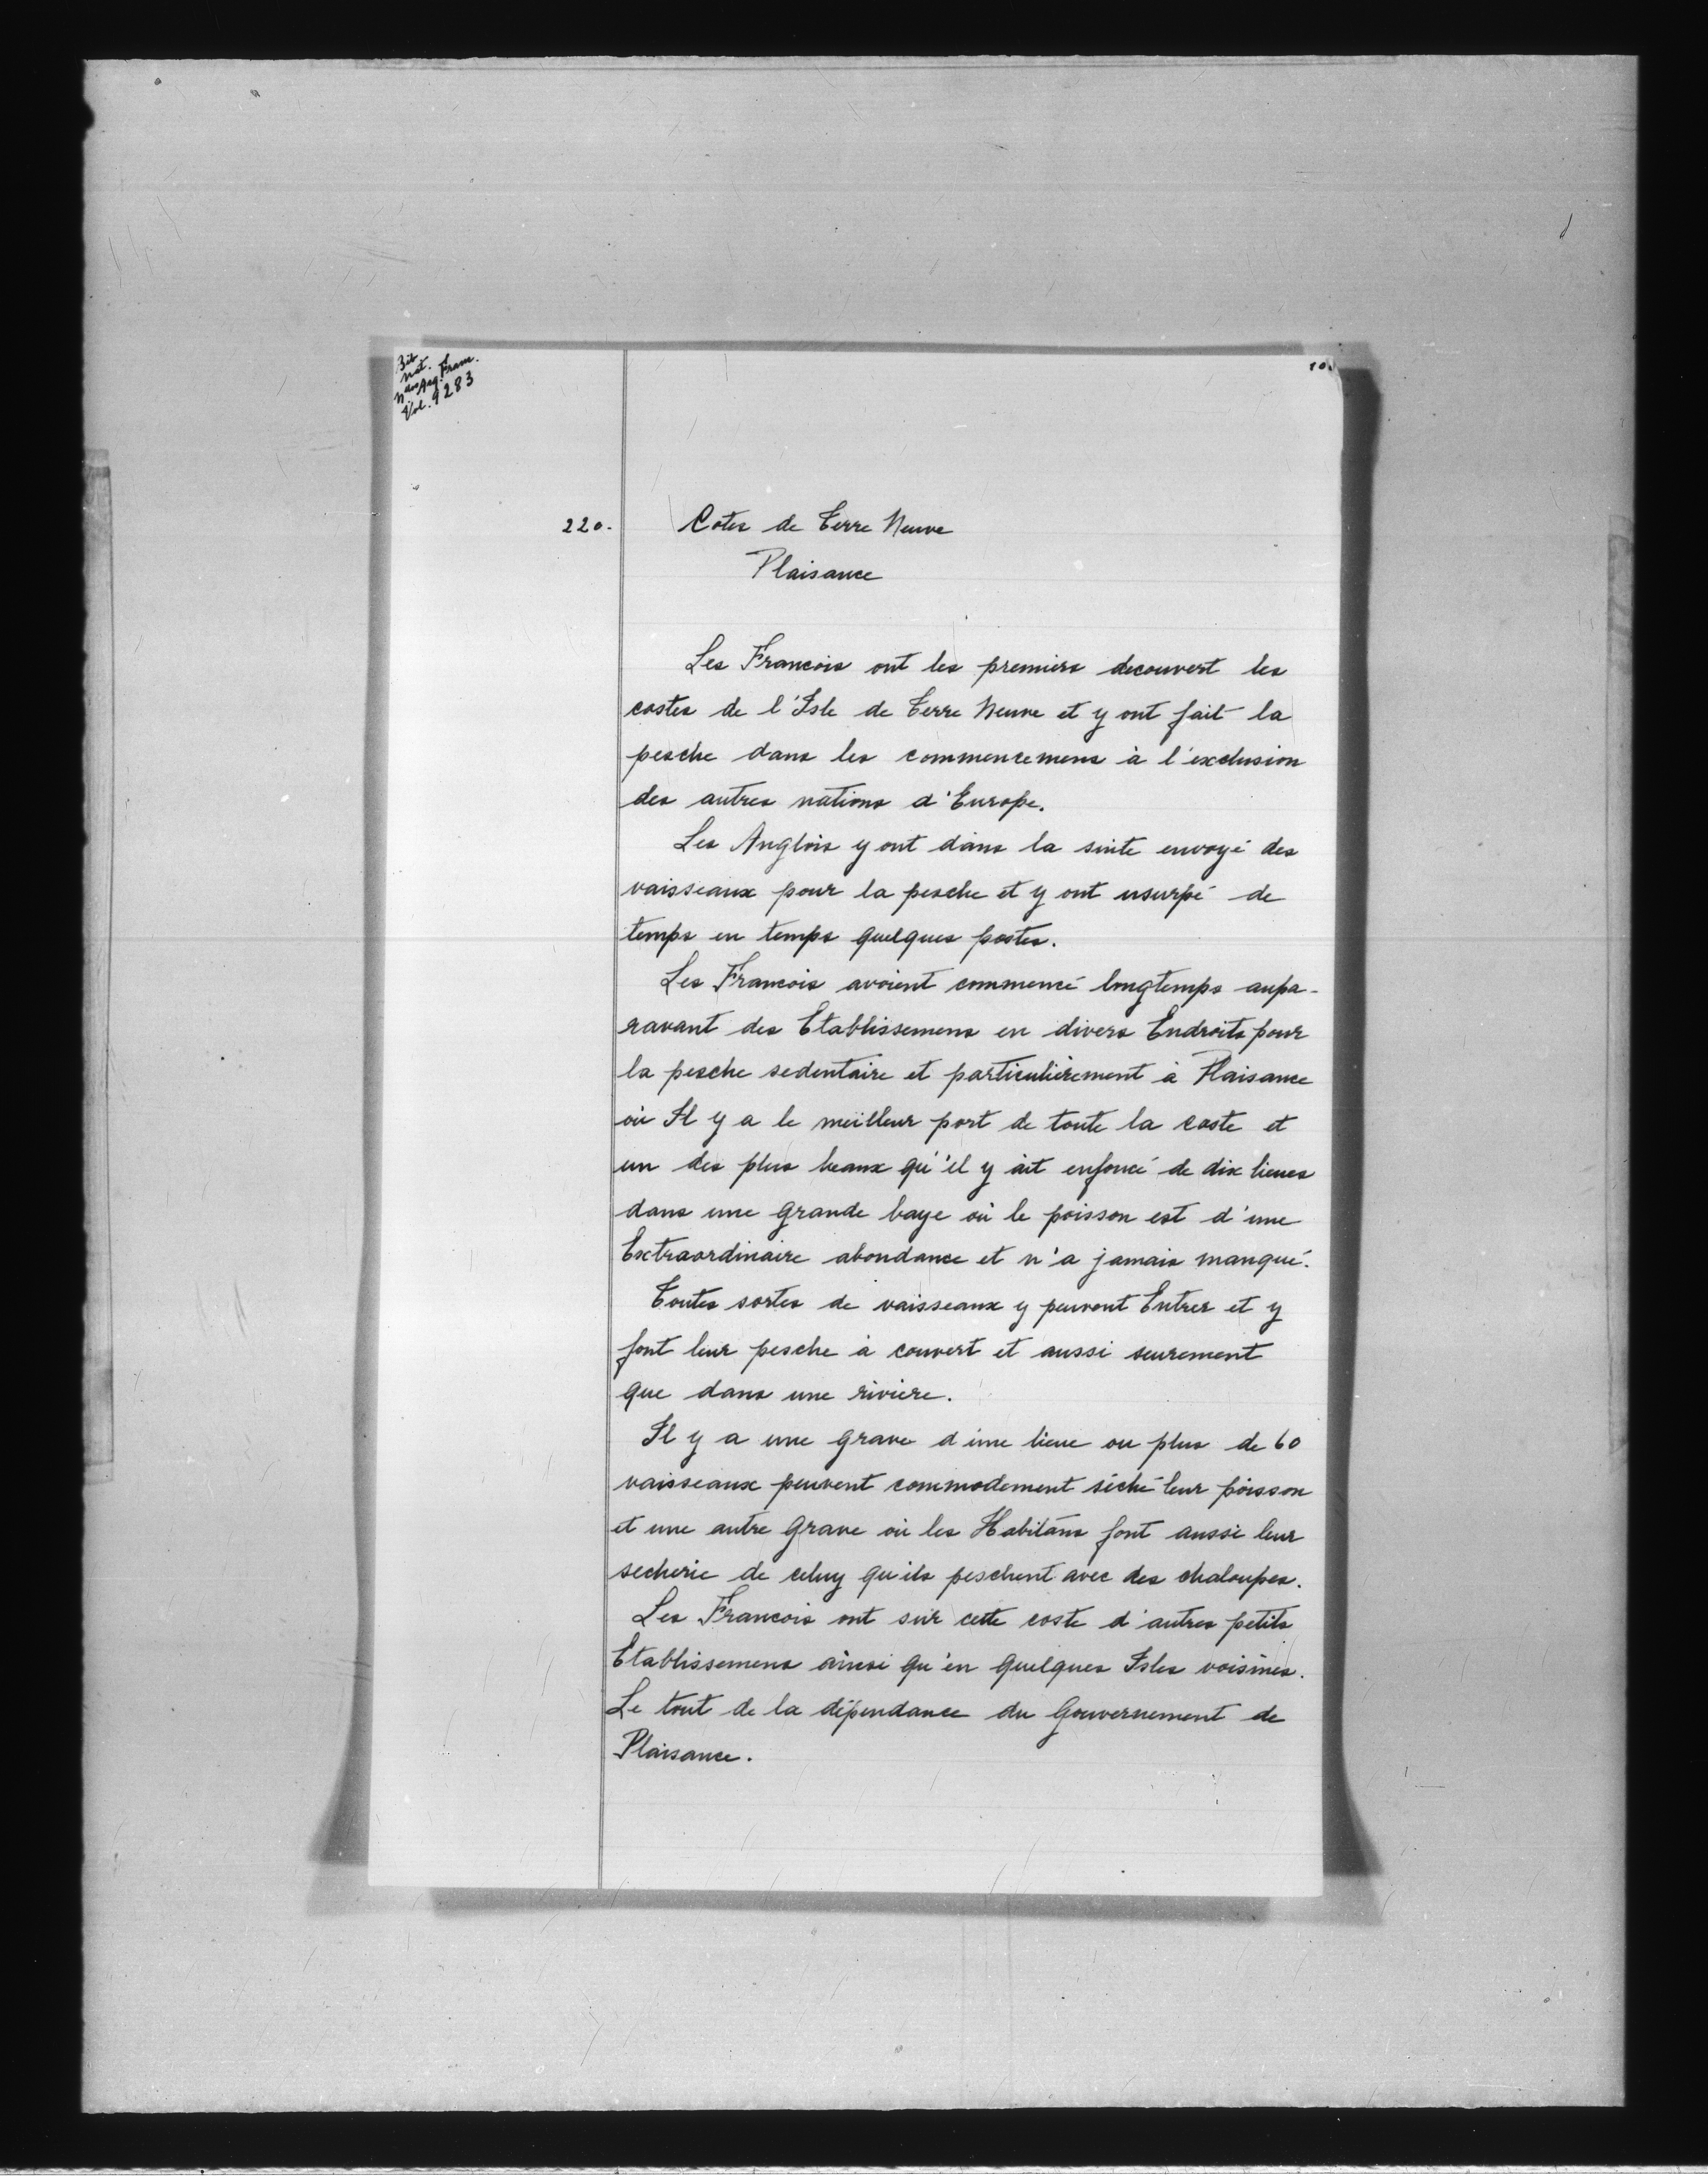 Bib
nat.
nles Acq. Franc.
Vol. 9283
10.
220.
Cotes de Terre Neuve
Plaisance
Les Francois ont les premiers decouvert les
costes de l'Isle de Terre Neuve et y ont fait la
pesche dans les commencemens à l'exclusion
des autres nations d'Europe.
Les Anglois y ont dans la suite envoyé des
vaisseaux pour la pesche et y ont usurpé de
temps en temps quelques postes.
Les Francois avoient commencé longtemps aupa-
ravant des Etablissemens en divers Endroits pour
la pesche sedentaire et particulièrement à Plaisance
où Il y a le meilleur port de toute la coste et
un des plus beaux qu'il y ait enfoncé de dix lieues
dans une grande baye où le poisson est d'une
Extraordinaire abondance et n'a jamais manqué.
Toutes sortes de vaisseaux y peuvent Entrer et y
font leur pesche à couvert et aussi seurement
que dans une riviere.
Il y a une grave d'une lieue ou plus de 60
vaisseaux peuvent commodement séché leur poisson
et une autre grave où les Habitans font aussi leur
secherie de celuy qu'ils peschent avec des chaloupes.
Les Francois ont sur cette coste d'autres petits
Etablissemens ainsi qu'en quelques Isles voisines.
Le tout de la dépendance du Gouvernement de
Plaisance.